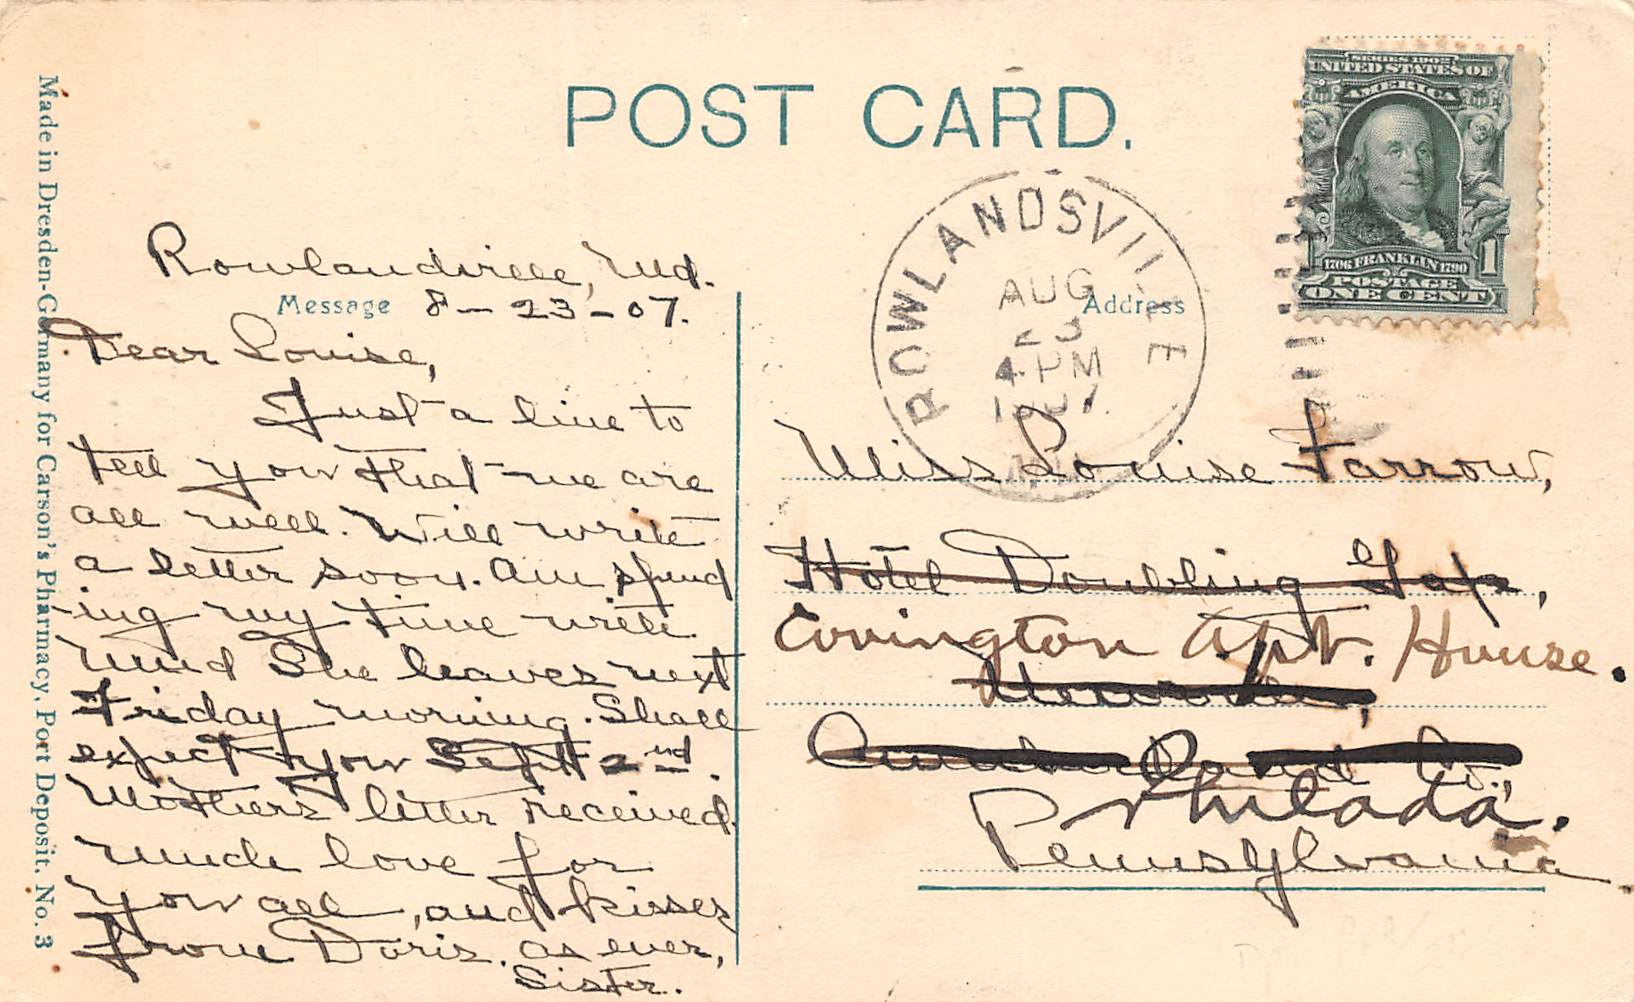 POST CARD.
Made in Dresden-Germany for Carson's Pharmacy, Port Deposit. No. 3
SERIES 1902
UNITED STATES OF
AMERICA
1706 FRANKLIN 1790
POSTAGE
1 ONE CENT 1
ROWLANDSVILLE
AUG
23
4 PM
1907
Message
Address
Rowlandville, Md.
8-23-07.
Dear Louise,
Just a line to
tell you that we are
all well. Will write
a letter soon. Am spend
-ing my time with
She leaves next
Friday morning. Shall
expect you Sept 2nd.
Mothers letter received.
much love for
you all, and kisses
from Doris. as ever,
Sister.
Miss Louise Farrow,
Hotel Doubling Gap,
Covington Apt. House.
Cumberland Co.,
Philada.
Pennsylvania.